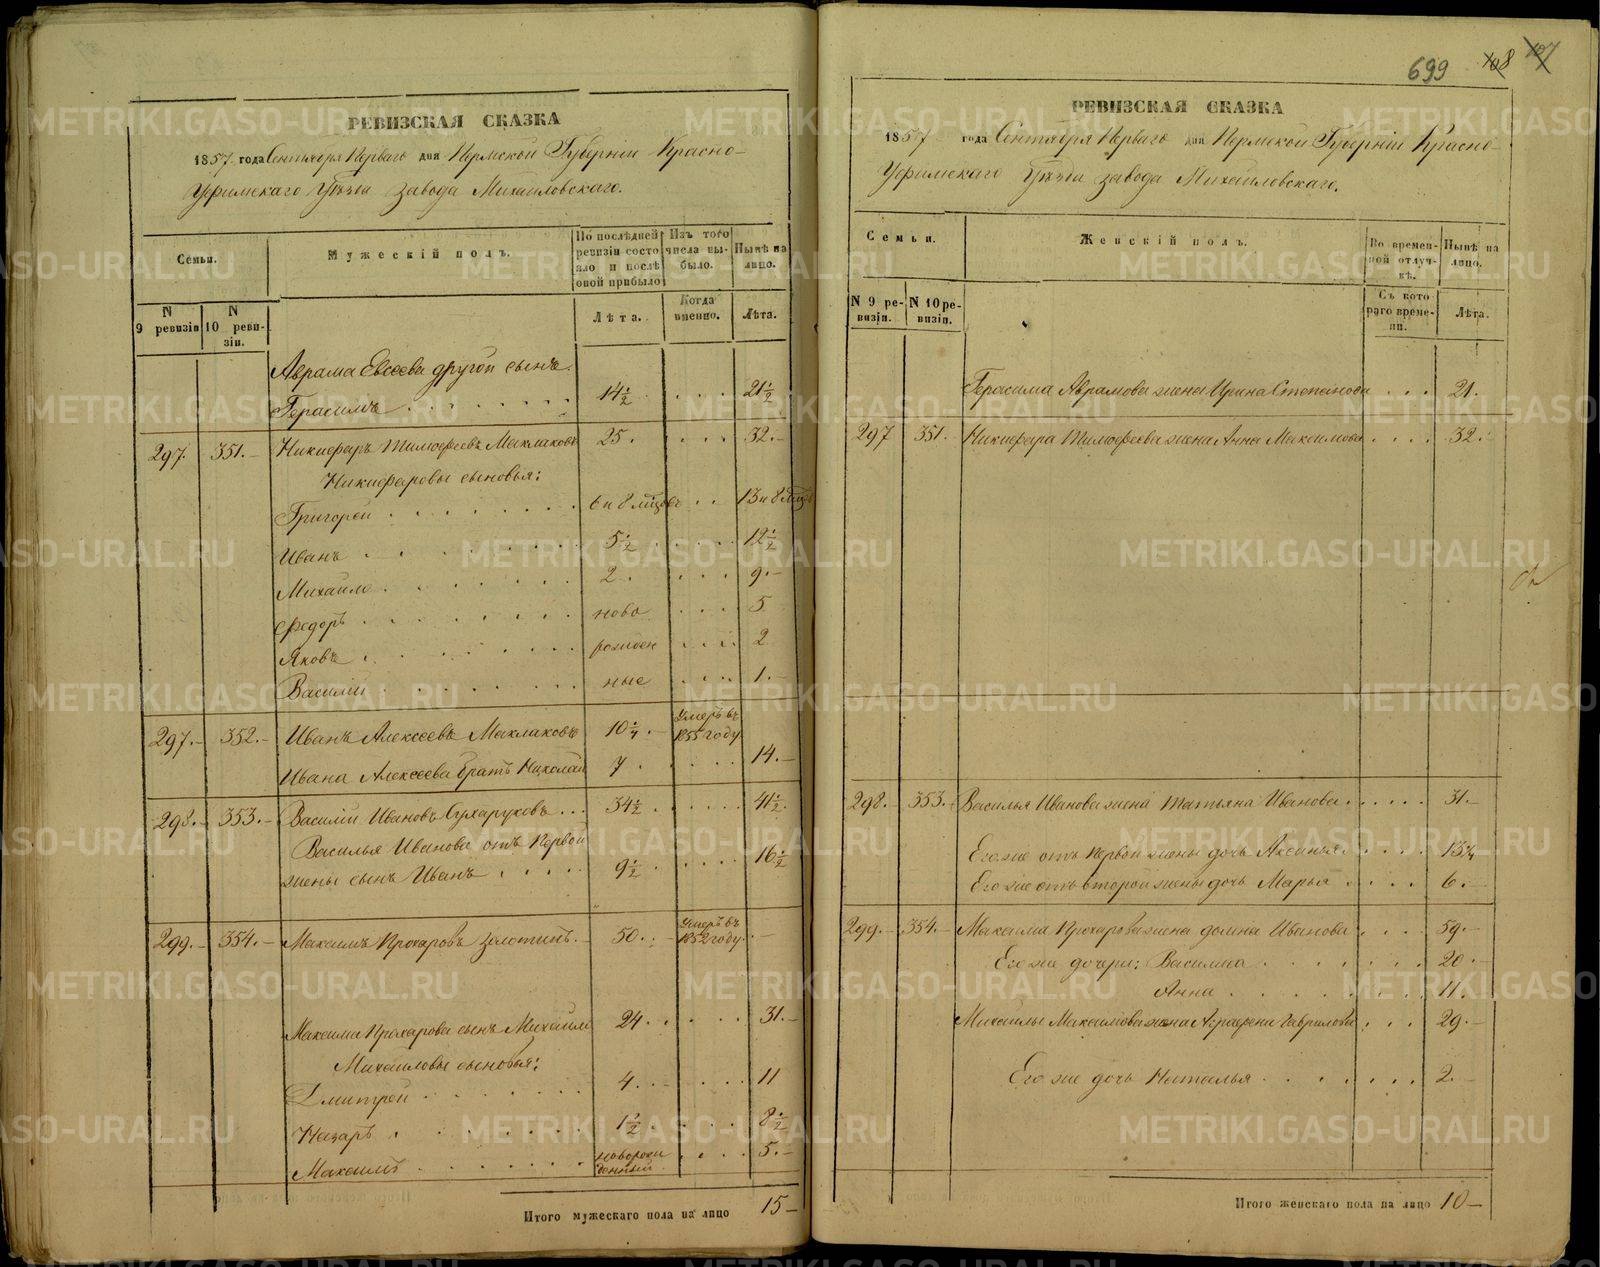 699 108 107
РЕВИЗСКАЯ СКАЗКА
1857 года Сентября Перваго дня Пермской Губерніи Красно-
Уфимскаго Уѣзда завода Михайловскаго.
Семьи.
Мужескій полъ.
По послѣдней ревизіи состояло и послѣ оной прибыло
Изъ того числа выбыло.
Нынѣ на лицо.
N 9 ревизіи
N 10 ревизіи.
Лѣта.
Когда именно.
Лѣта.
Аврама Евсеева другой сынъ
Герасимъ 14½ 21½
297. 351. Никифаръ Тимофеевъ Маклаковъ 25. 32.
Никифаровы сыновья:
Григорей 6 и 8 мѣсцовъ 13 и 8 мѣсц
Иванъ 5½ 12½
Михайло 2. 9.
Федоръ ново 5
Яковъ рожден 2
Василій ные 1.
297. 352. Иванъ Алексеевъ Маклаковъ 10¼. Умеръ въ 1855 году
Ивана Алексеева братъ Николай 7 14.
298. 353. Василій Ивановъ Сухаруковъ 34½ 41½.
Василья Иванова отъ первой
жены сынъ Иванъ 9½ 16½
299. 354. Максимъ Прохаровъ Золотинъ. 50. Умеръ въ 1852 году
Максима Прохарова сынъ Михайло 24. 31.
Михайловы сыновья:
Дмитрей 4. 11
Назаръ 1½ 8½
Максимъ новорожденный. 5.
Итого мужескаго пола на лицо 15
РЕВИЗСКАЯ СКАЗКА
1857 года Сентября Перваго дня Пермской Губерніи Красно-
Уфимскаго Уѣзда завода Михайловскаго.
Семьи.
Женскій полъ.
Во временной отлучкѣ.
Нынѣ на лицо.
N 9 ревизіи.
N 10 ревизіи.
Съ котораго времени.
Лѣта.
Герасима Аврамова жена Ирина Степанова 21.
297 351. Никифара Тимофеева жена Анна Максимова 32.
298. 353. Василья Иванова жена Татьяна Иванова 31.
Его же отъ первой жены дочь Аксинья. 13¾
Его же отъ второй жены дочь Марья 6.
299. 354. Максима Прохарова жена Домна Иванова 59.
Его же дочери: Василиса 20.
Анна 11.
Михайлы Максимова жена Аграфена Гаврилова 29.
Его же дочь Наталья 2.
Итого женскаго пола на лицо 10
METRIKI.GASO-URAL.RU